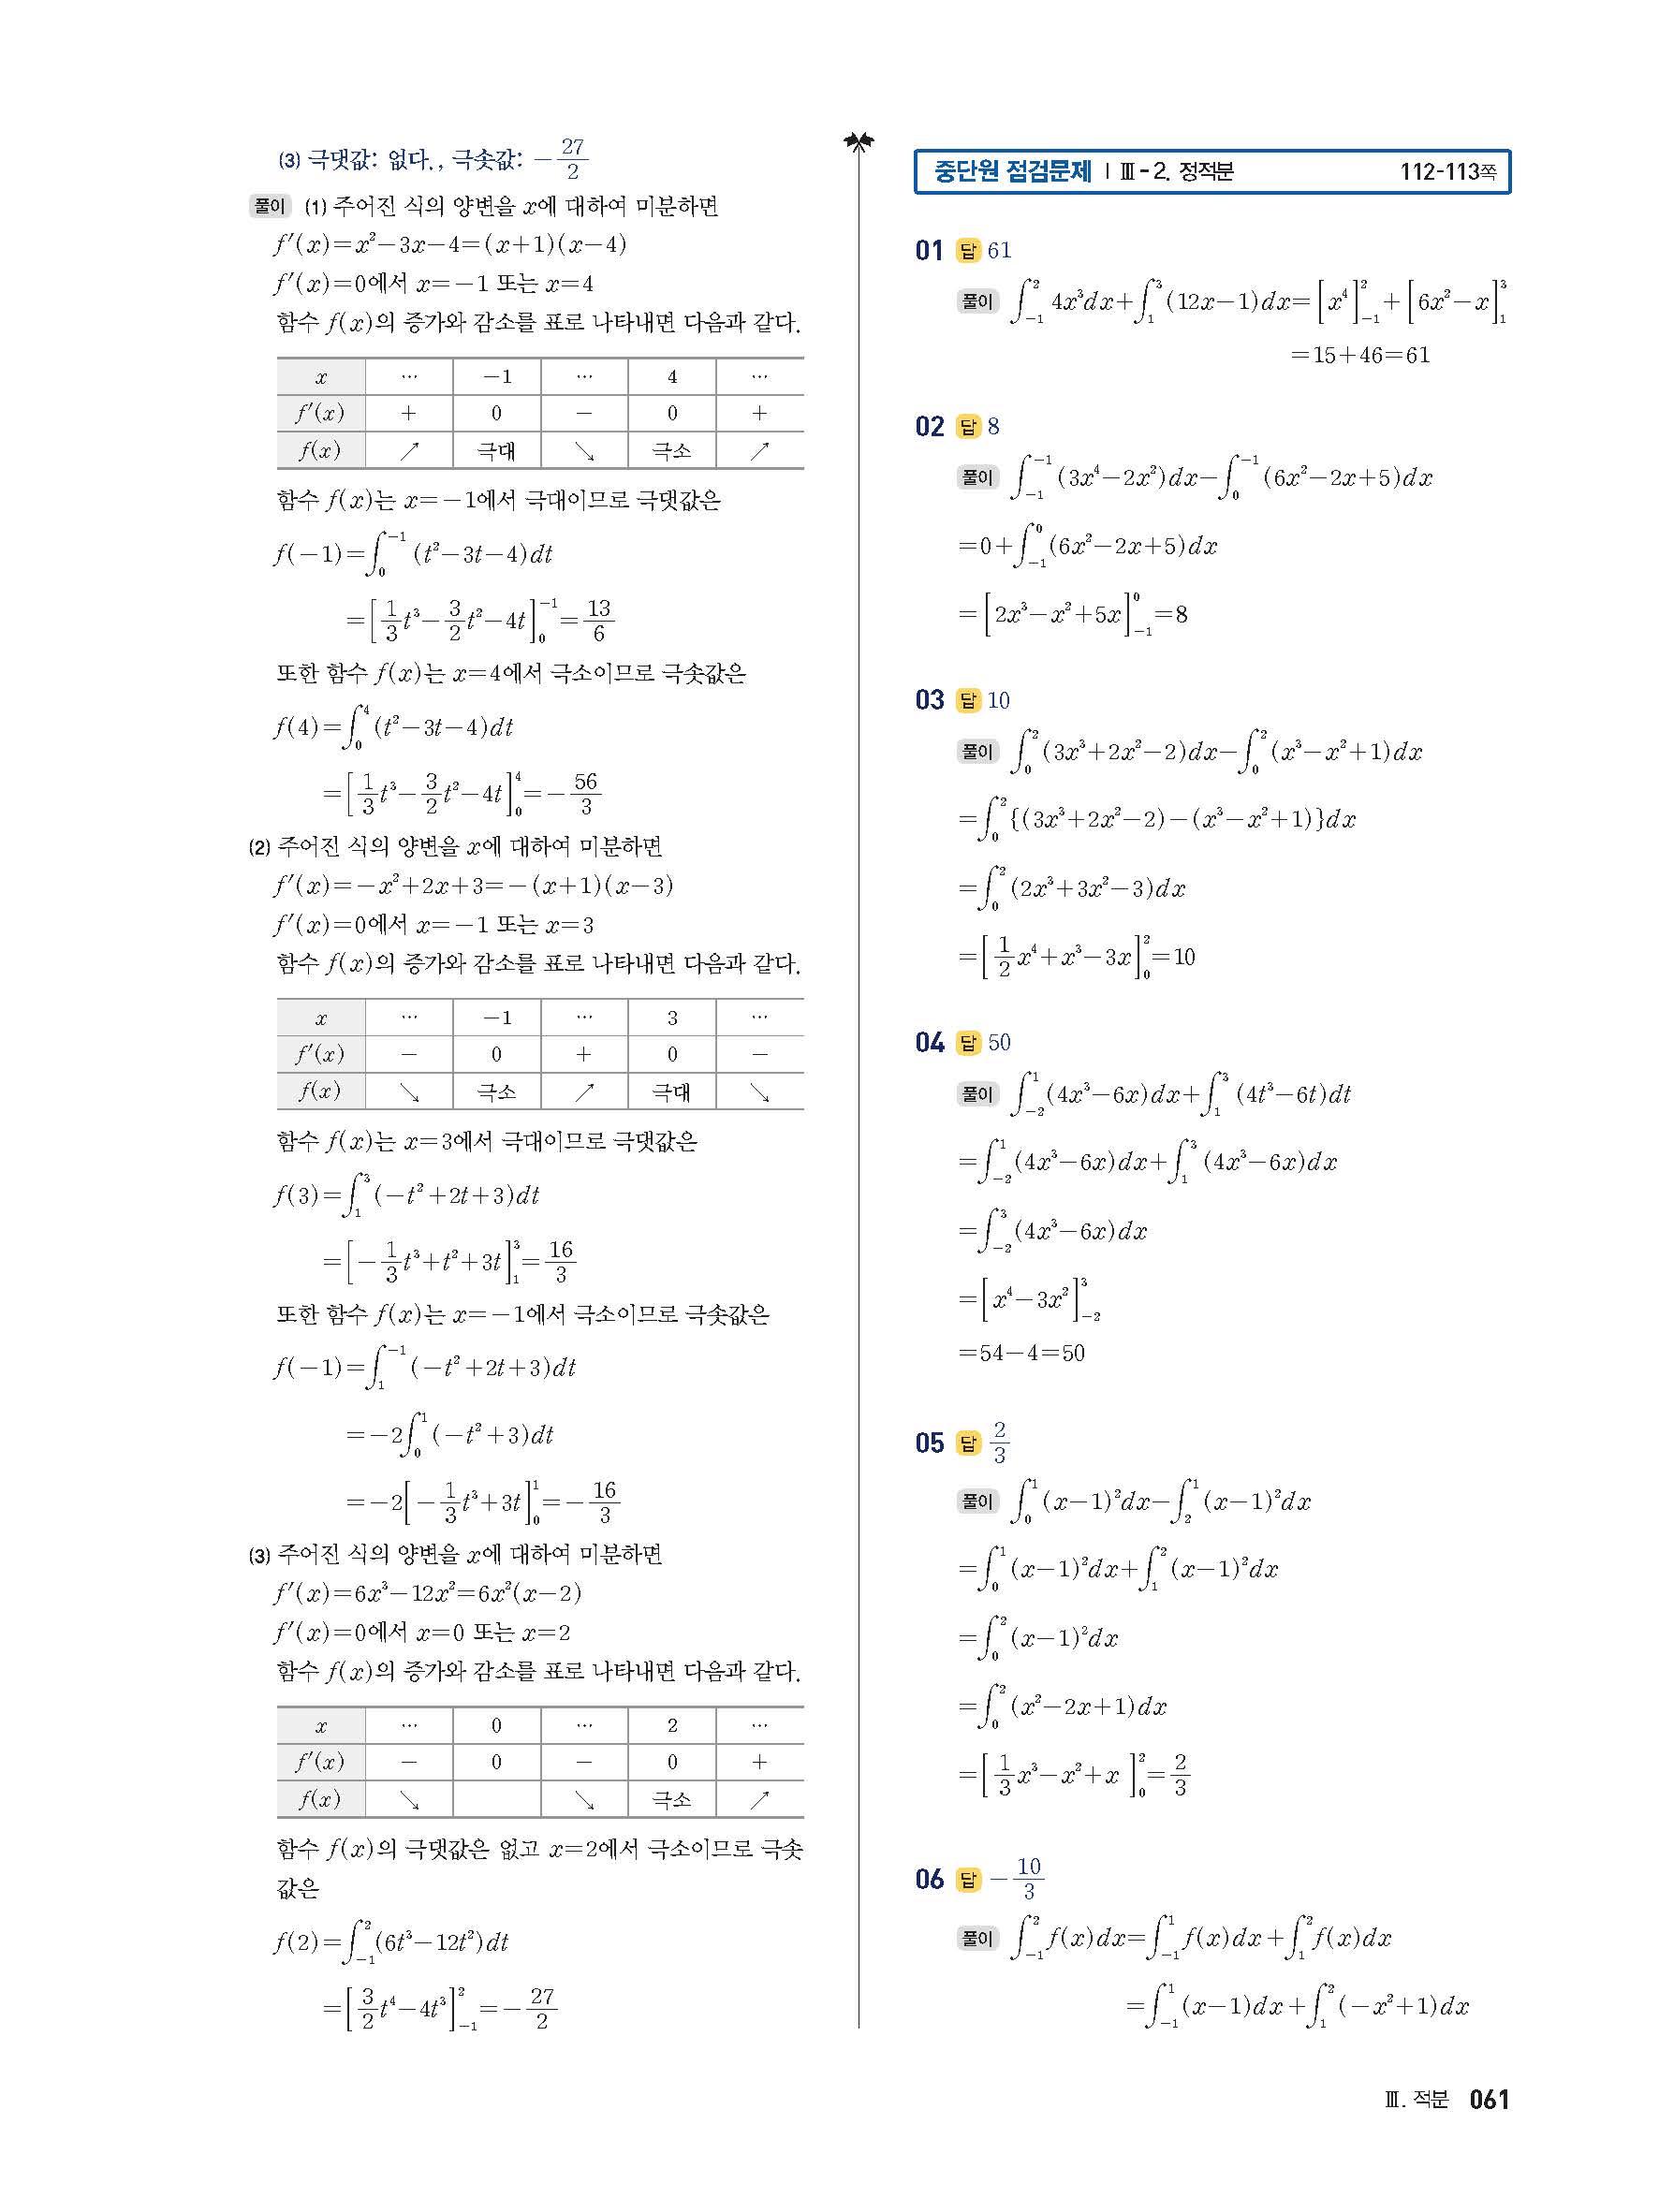 (3) 극댓값: 없다., 극솟값: −27/2
풀이 (1) 주어진 식의 양변을 x에 대하여 미분하면
f′(x)=x²−3x−4=(x+1)(x−4)
f′(x)=0에서 x=−1 또는 x=4
함수 f(x)의 증가와 감소를 표로 나타내면 다음과 같다.
x … −1 … 4 …
f′(x) + 0 − 0 +
f(x) ↗ 극대 ↘ 극소 ↗
함수 f(x)는 x=−1에서 극대이므로 극댓값은
f(−1)=∫₀⁻¹(t²−3t−4)dt
=[1/3t³−3/2t²−4t]₀⁻¹=13/6
또한 함수 f(x)는 x=4에서 극소이므로 극솟값은
f(4)=∫₀⁴(t²−3t−4)dt
=[1/3t³−3/2t²−4t]₀⁴=−56/3
(2) 주어진 식의 양변을 x에 대하여 미분하면
f′(x)=−x²+2x+3=−(x+1)(x−3)
f′(x)=0에서 x=−1 또는 x=3
함수 f(x)의 증가와 감소를 표로 나타내면 다음과 같다.
x … −1 … 3 …
f′(x) − 0 + 0 −
f(x) ↘ 극소 ↗ 극대 ↘
함수 f(x)는 x=3에서 극대이므로 극댓값은
f(3)=∫₁³(−t²+2t+3)dt
=[−1/3t³+t²+3t]₁³=16/3
또한 함수 f(x)는 x=−1에서 극소이므로 극솟값은
f(−1)=∫₁⁻¹(−t²+2t+3)dt
=−2∫₀¹(−t²+3)dt
=−2[−1/3t³+3t]₀¹=−16/3
(3) 주어진 식의 양변을 x에 대하여 미분하면
f′(x)=6x³−12x²=6x²(x−2)
f′(x)=0에서 x=0 또는 x=2
함수 f(x)의 증가와 감소를 표로 나타내면 다음과 같다.
x … 0 … 2 …
f′(x) − 0 − 0 +
f(x) ↘ ↘ 극소 ↗
함수 f(x)의 극댓값은 없고 x=2에서 극소이므로 극솟
값은
f(2)=∫₋₁²(6t³−12t²)dt
=[3/2t⁴−4t³]₋₁²=−27/2
중단원 점검문제 | Ⅲ-2. 정적분 112-113쪽
01 답 61
풀이 ∫₋₁²4x³dx+∫₁³(12x−1)dx=[x⁴]₋₁²+[6x²−x]₁³
=15+46=61
02 답 8
풀이 ∫₋₁⁻¹(3x⁴−2x²)dx−∫₀⁻¹(6x²−2x+5)dx
=0+∫₋₁⁰(6x²−2x+5)dx
=[2x³−x²+5x]₋₁⁰=8
03 답 10
풀이 ∫₀²(3x³+2x²−2)dx−∫₀²(x³−x²+1)dx
=∫₀²{(3x³+2x²−2)−(x³−x²+1)}dx
=∫₀²(2x³+3x²−3)dx
=[1/2x⁴+x³−3x]₀²=10
04 답 50
풀이 ∫₋₂¹(4x³−6x)dx+∫₁³(4t³−6t)dt
=∫₋₂¹(4x³−6x)dx+∫₁³(4x³−6x)dx
=∫₋₂³(4x³−6x)dx
=[x⁴−3x²]₋₂³
=54−4=50
05 답 2/3
풀이 ∫₀¹(x−1)²dx−∫₂¹(x−1)²dx
=∫₀¹(x−1)²dx+∫₁²(x−1)²dx
=∫₀²(x−1)²dx
=∫₀²(x²−2x+1)dx
=[1/3x³−x²+x]₀²=2/3
06 답 −10/3
풀이 ∫₋₁²f(x)dx=∫₋₁¹f(x)dx+∫₁²f(x)dx
=∫₋₁¹(x−1)dx+∫₁²(−x²+1)dx
Ⅲ. 적분 061